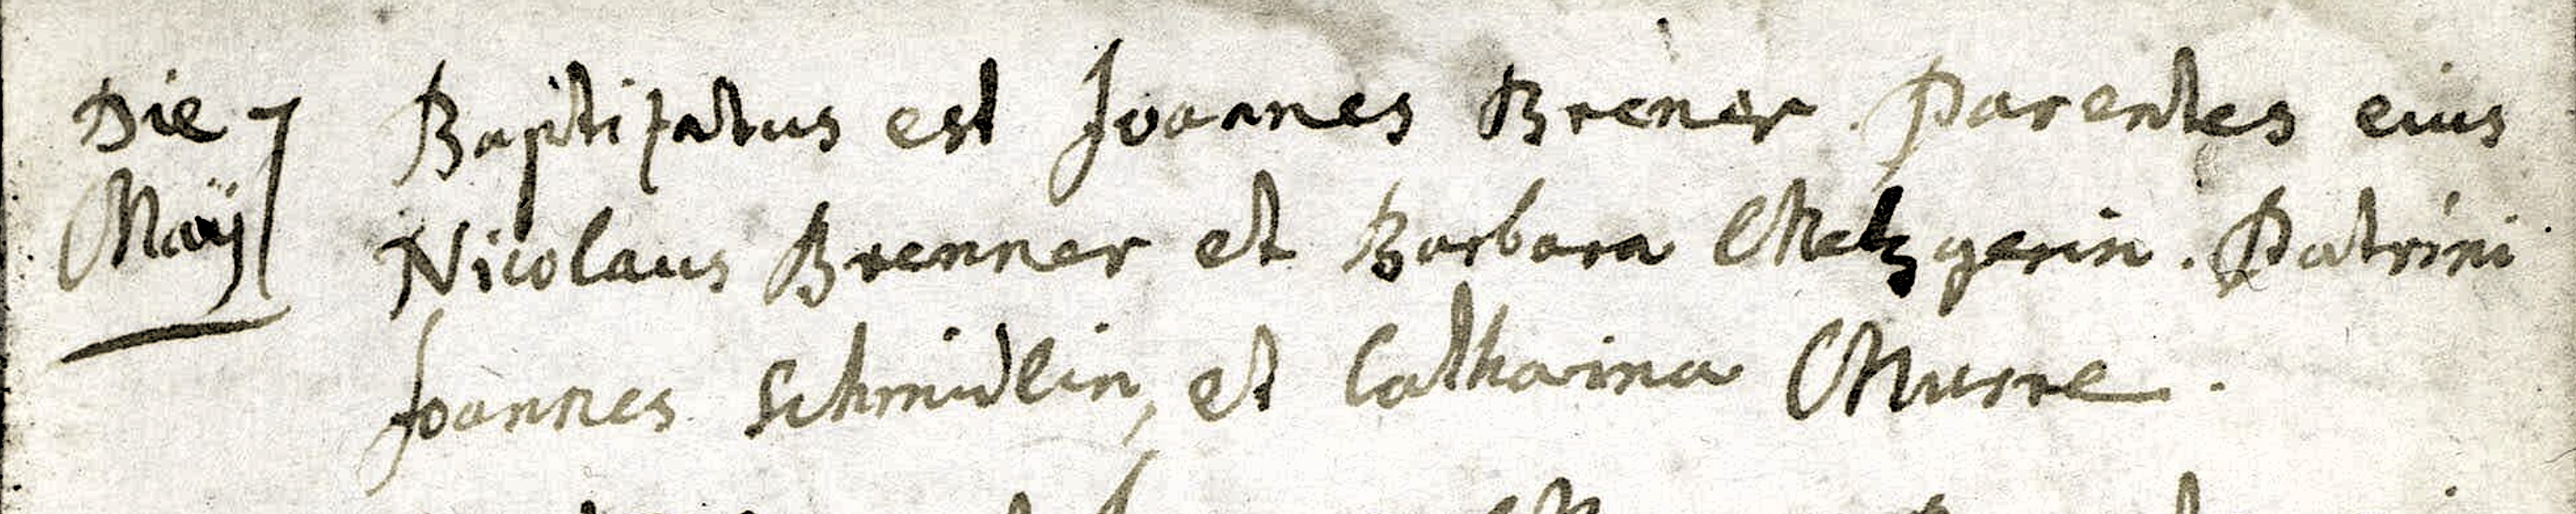 Die 7 Baptizatus est Joannes Brener. Parentes eius
Maÿ Nicolaus Brenner et Barbara Metzgerin. Patrini
Joannes Schmidlin, et Catharina Murre.